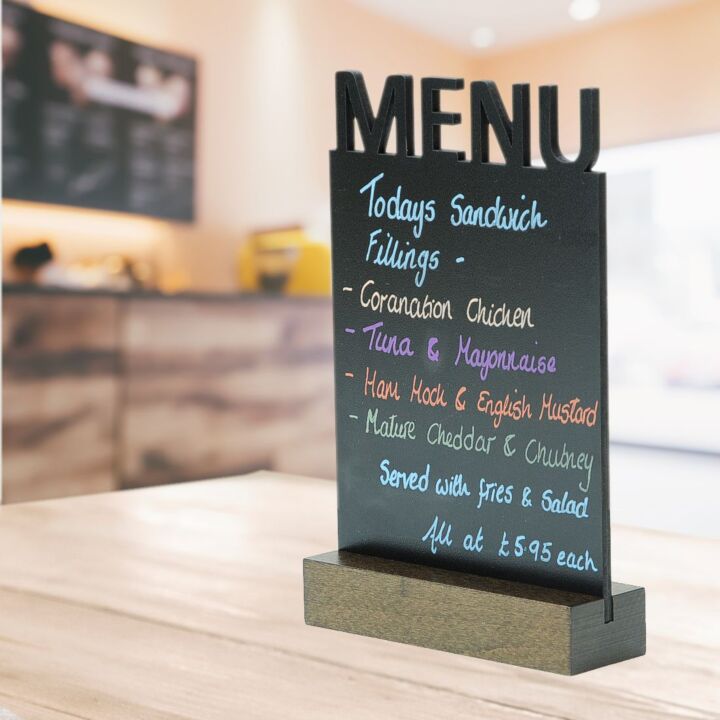 MENU
Todays Sandwich
Fillings -
- Coranation Chicken
- Tuna & Mayonnaise
- Ham Hock & English Mustard
- Mature Cheddar & Chutney
Served with fries & Salad
All at £5.95 each